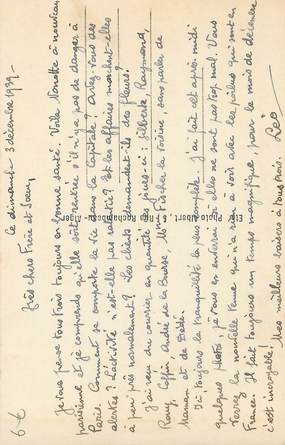 Le dimanche 3 décembre 1939.
Très chers Frère et Soeur,
Je vous pense tous trois toujours en bonne santé. Voilà Nonotte à nouveau
parisienne et je comprends qu'elle soit rentrée s'il n'y a pas de danger à
Paris. Comment se comporte la vie dans la Capitale ? Avez-vous des
alertes ? L'activité n'est-elle pas ralentie ? Et les affaires marchent-elles
à peu près normalement ? Les clients demandent-ils des fleurs ?
J'ai reçu du courrier en quantité ces jours-ci : Gilberte, Raymond,
Coffin, André de la Bourse, Mme Fischer la voisine, sans parler de
Maman et de Dédé.
Ici, toujours la tranquillité la plus complète. J'ai fait cet après-midi
quelques photos, je vous en enverrai si elles ne sont pas trop mal. Vous
verrez la nouvelle tenue qui n'a rien à voir avec les poilus qui sont en
France. Il fait toujours un temps magnifique, pour le mois de décembre
c'est incroyable !
Mes meilleurs baisers à tous trois.
Léo